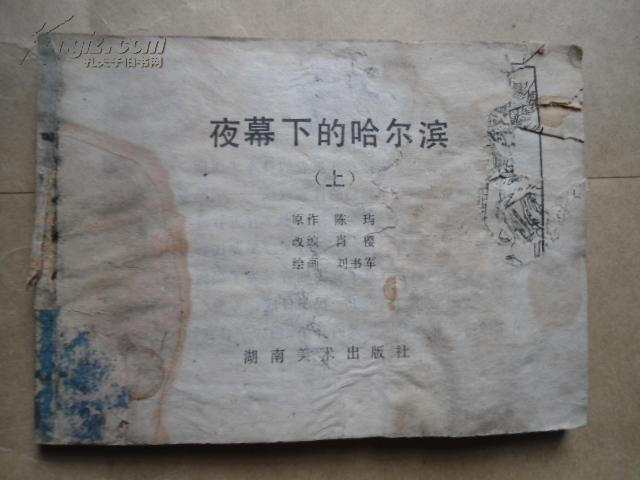 Kongfz.com
孔夫子旧书网
夜幕下的哈尔滨
（上）
原作 陈玙
改编 肖樱
绘画 刘书军
湖南美术出版社